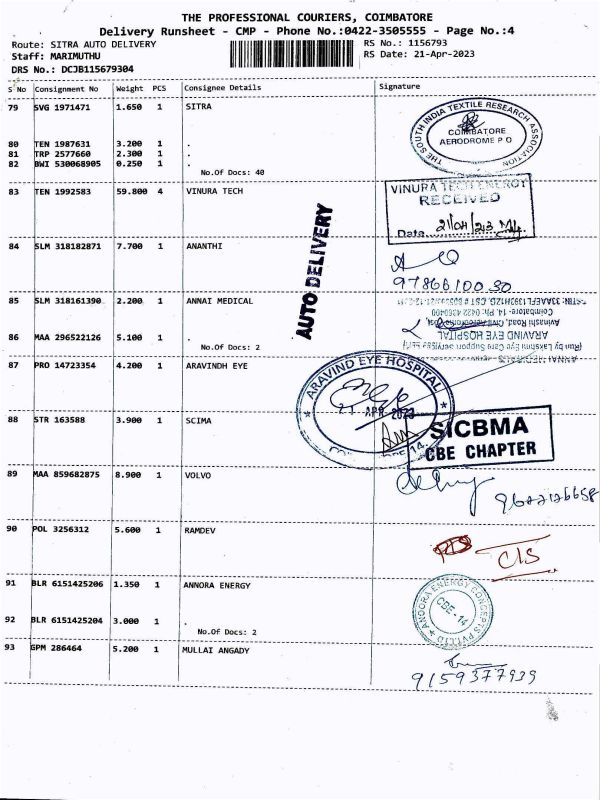 THE PROFESSIONAL COURIERS, COIMBATORE
Delivery Runsheet - CMP - Phone No.:0422-3505555 - Page No.:4
Route: SITRA AUTO DELIVERY
RS No.: 1156793
Staff: MARIMUTHU
RS Date: 21-Apr-2023
DRS No.: DCJB115679304
S No Consignment No Weight PCS Consignee Details Signature
79 SVG 1971471 1.650 1 SITRA
THE SOUTH INDIA TEXTILE RESEARCH ASSOCIATION
COIMBATORE
AERODROME P O
80 TEN 1987631 3.200 1 .
81 TRP 2577660 2.300 1 .
82 BWI 530068905 0.250 1 .
No.Of Docs: 40
83 TEN 1992583 59.800 4 VINURA TECH
VINURA TECH ENERGY
RECEIVED
Date
AUTO DELIVERY
84 SLM 318182871 7.700 1 ANANTHI
9786610030
85 SLM 318161390 2.200 1 ANNAI MEDICAL
Coimbatore- 14. Ph: 0422 4360400
Avinashi Road, Civil Aerodrome Post,
ARAVIND EYE HOSPITAL
(Run by Lakshmi Eye Care Support Services LLP)
ANNAI MEDICALS
86 MAA 296522126 5.100 1 .
No.Of Docs: 2
87 PRO 14723354 4.200 1 ARAVINDH EYE
ARAVIND EYE HOSPITAL
21 APR 2023
88 STR 163588 3.900 1 SCIMA
SICBMA
CBE CHAPTER
89 MAA 859682875 8.900 1 VOLVO
90 POL 3256312 5.600 1 RAMDEV
CIS
91 BLR 6151425206 1.350 1 ANNORA ENERGY
ANDORA ENERGY CONCEPTS PVT LTD
CBE-14
92 BLR 6151425204 3.000 1 .
No.Of Docs: 2
93 GPM 286464 5.200 1 MULLAI ANGADY
9159377939